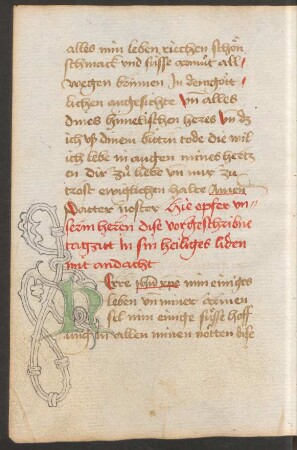 alles min leben riechen schön
schmack vnd süsse armůt all
wegen brinnen Jn dem göt
lichen angesichte Vn alles
dines himelischen heres Vn dz
ich vß dinem bittrin tode die wil
ich lebe in augen mines hertz
en dir zů liebe vn mir zu
trost ewiglichen halte Amen
Patter noster Hie opfer vn
serm herren dise vorgeschribne
tagzitt in sin heiliges liden
mit andacht
Herre ihu xpe min einiges
leben vn miner armen
sel min einige süsse hoff
nung in allen minen nötten dise